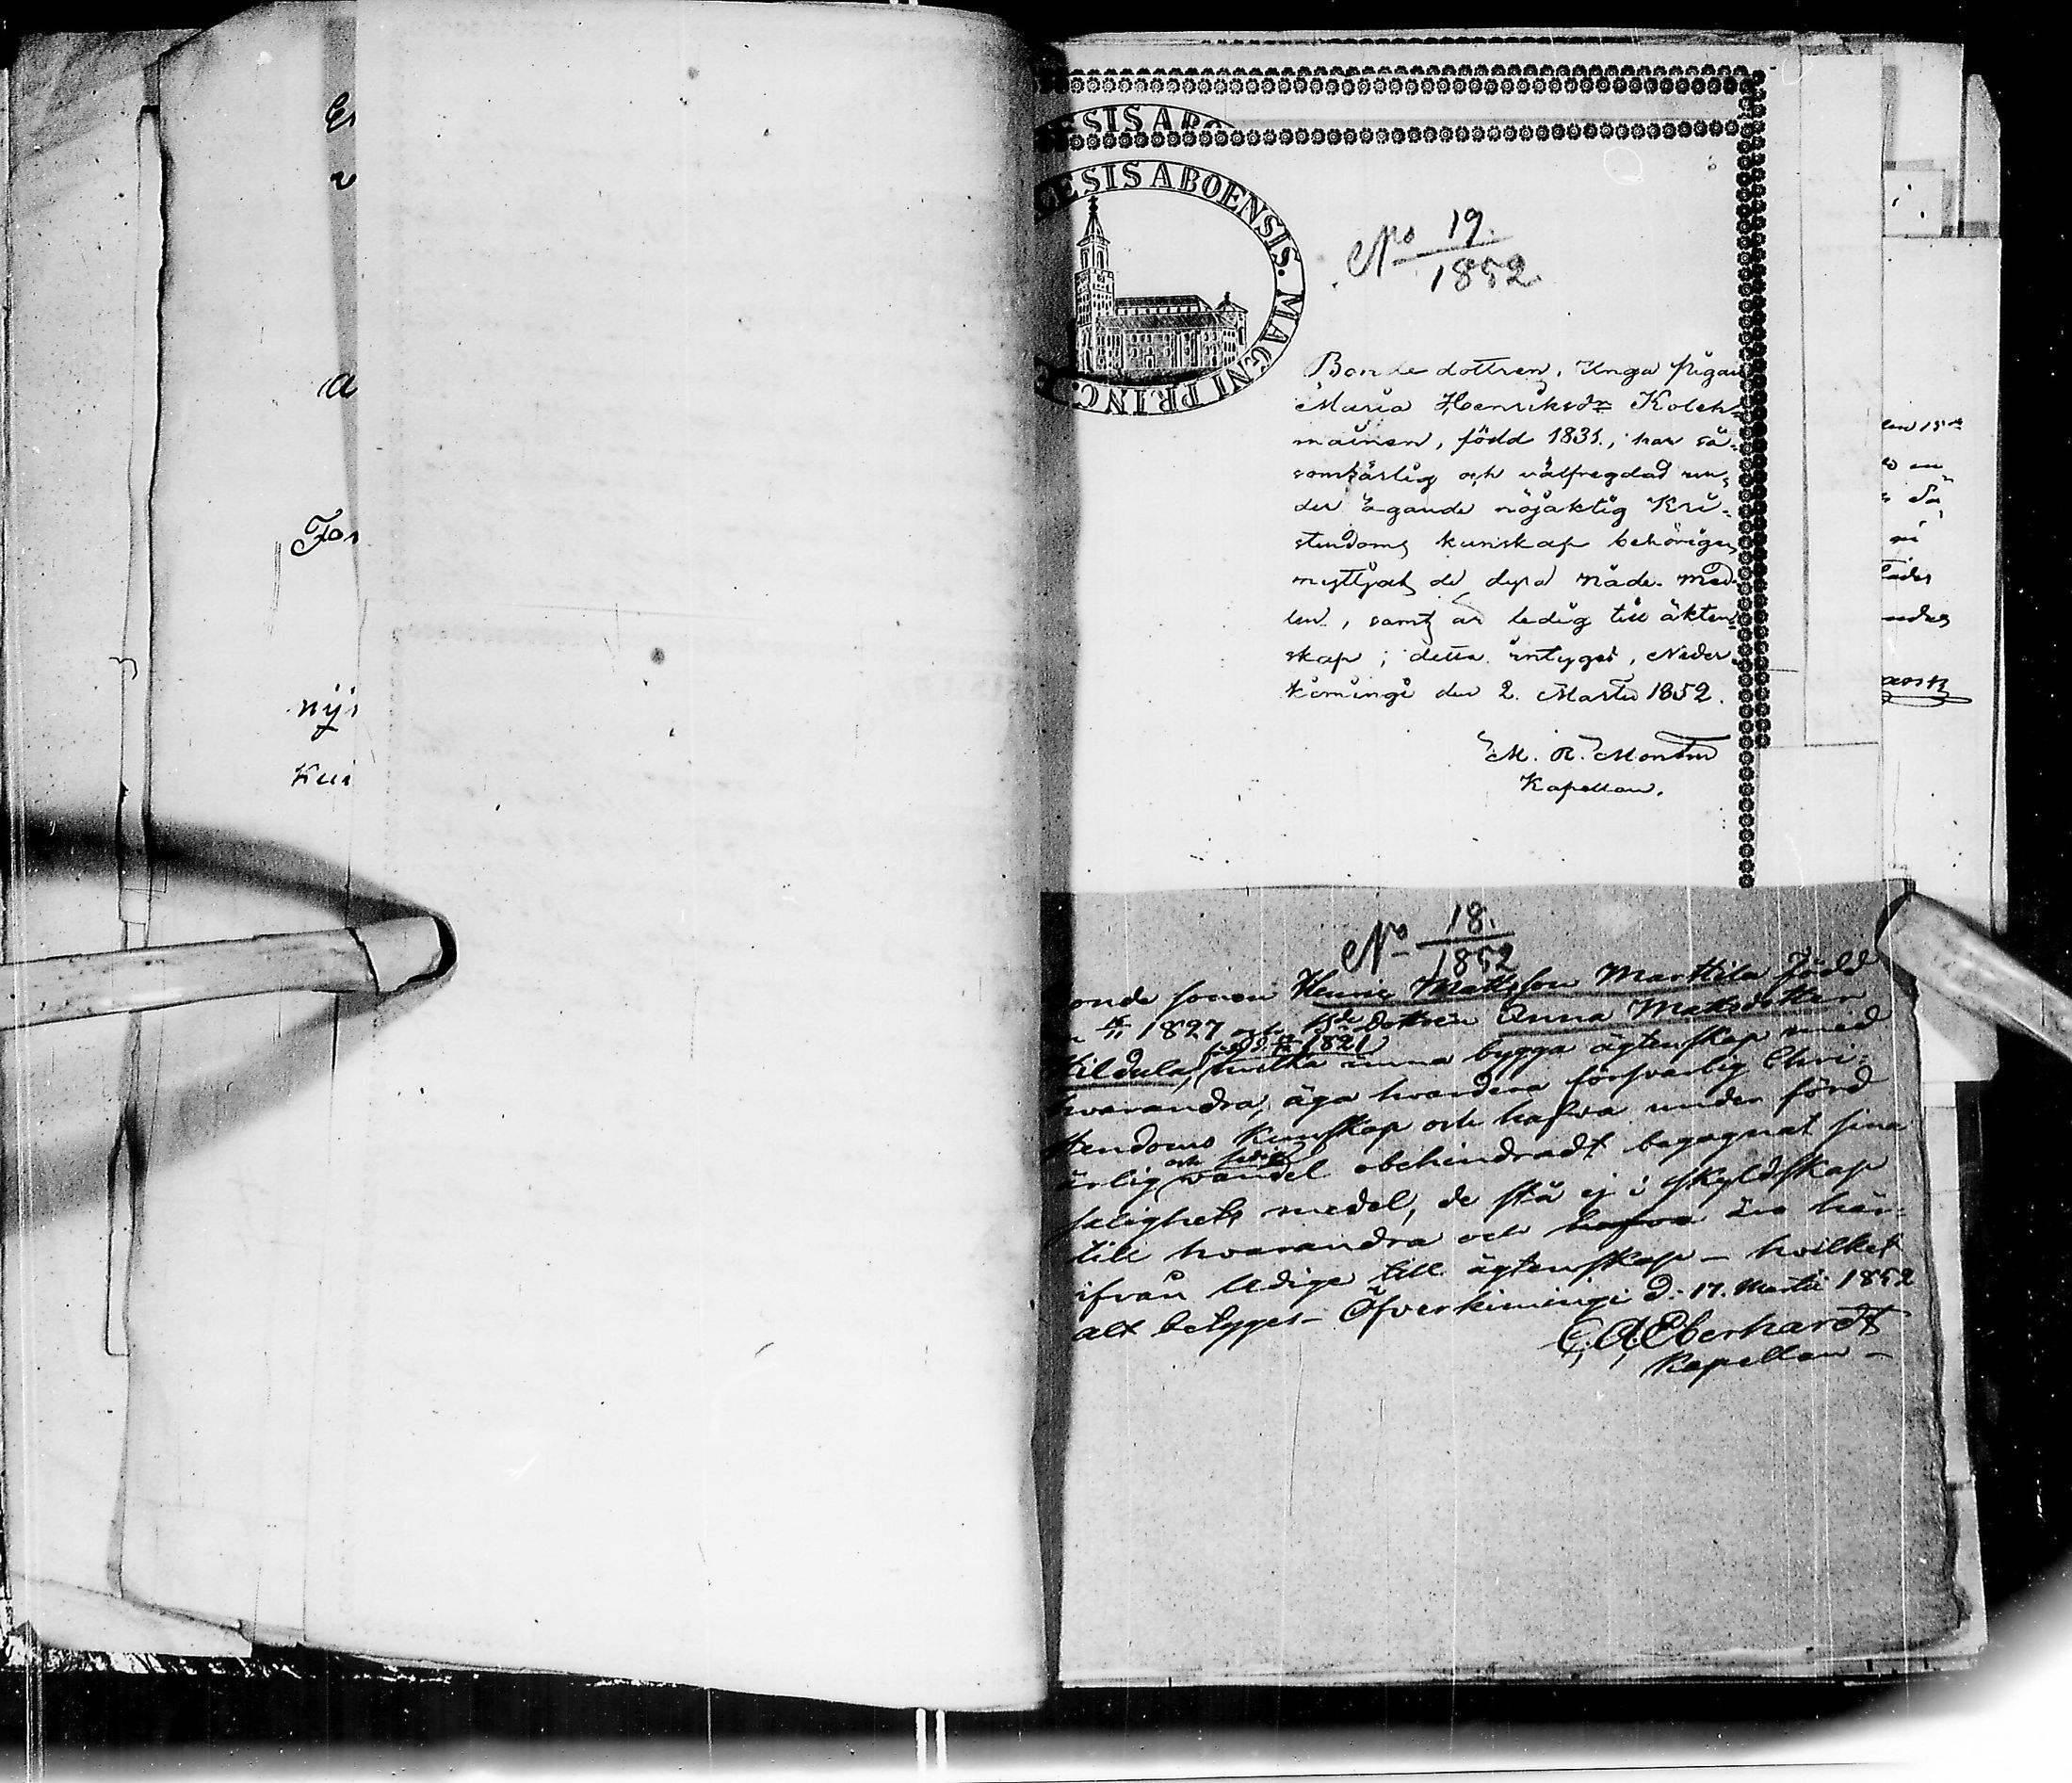 Er
v
a
For
nÿs
Kui
ESIS ABO
CESIS ABOENSIS. MAGNI PRINC. F
No 19.
1852.
Bonde dottren, Unga pigan
Maria Henriksdr Koleh-
mainen, född 1831., har så-
som ärlig och välfregdad un-
der ägande nöjaktig Kri-
stendoms kunskap behörigen
nyttjat de dyra Nåde-med-
len, samt är ledig till äkten-
skap; detta intygas, Neder-
kiminge den 2. Martii 1852.
M. R. Montin
Kapellan.
den 15de
en
Så
ni
tades
andes
No 18.
1852
onde sonen Henric Mattsson Marttila född
1827 och Bde dottren Anna Mattsdotter
född 1821
Kildula, hvilka ärna bygga ägtenskap med
hvarandra, äga hvardera försvarlig Chri-
stendoms kunskap och hafva under förd
och sedig
ärlig vandel obehindradt begagnat sina
salighets medel, de stå ej i skyldskap
till hvarandra och hafva äro här-
ifrån ledige till ägtenskap – hvilket
alt betyges – Öfverkiminge d. 17. Martii 1852
C. A. Eberhardt
Kapellan –